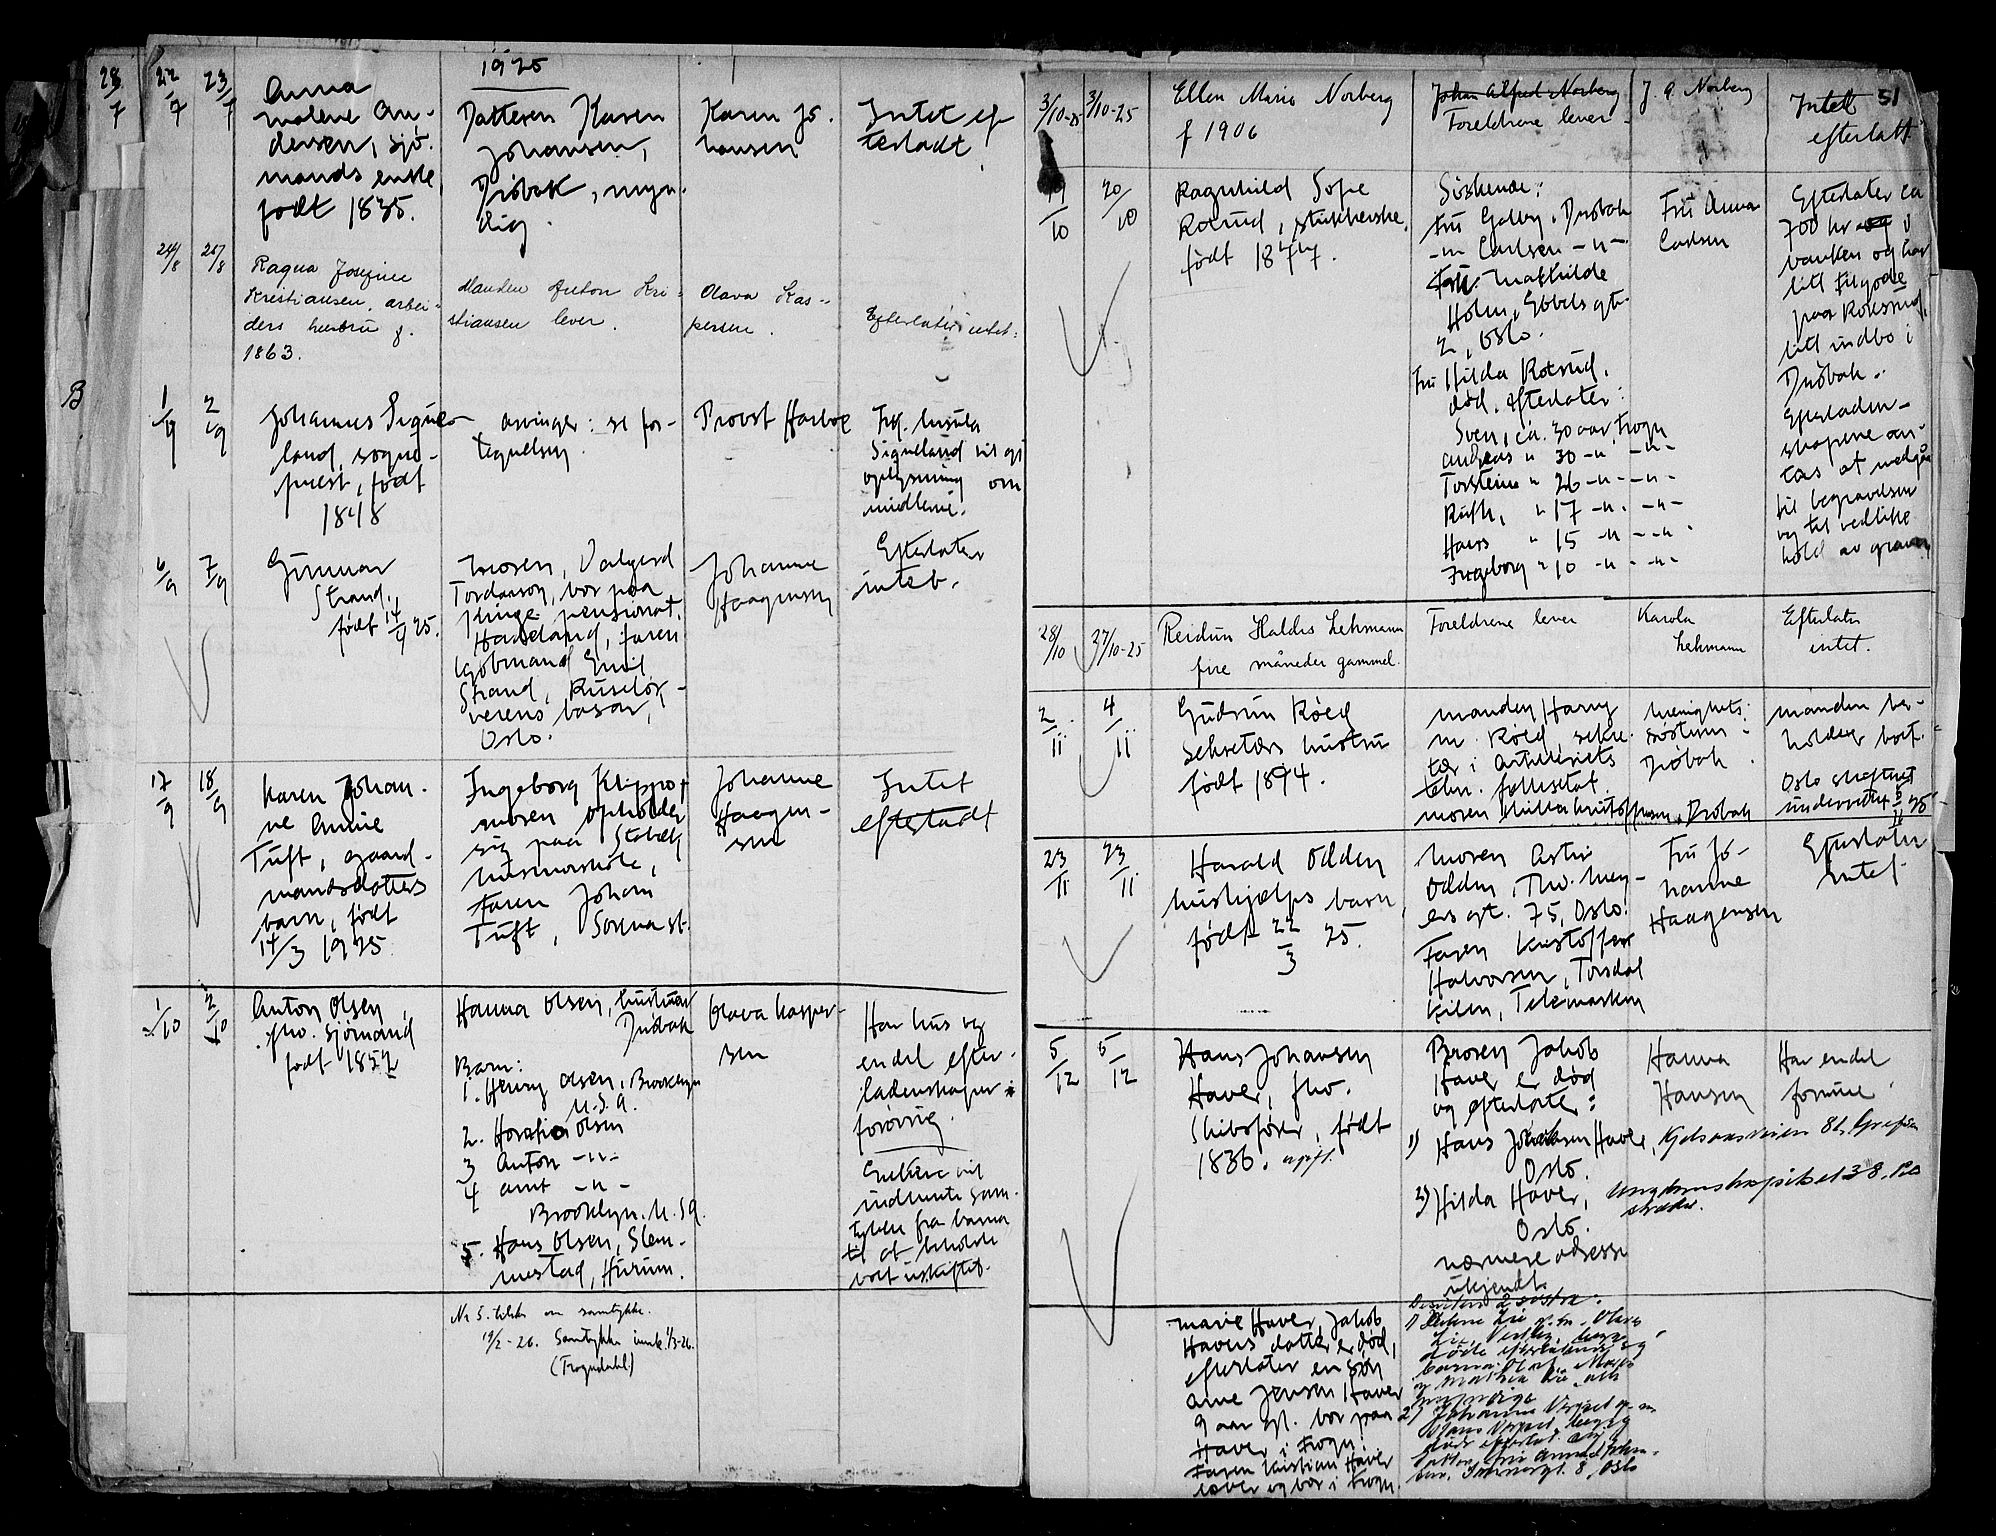 1925
28/7
22/7
23/7
Anna
Malene An-
dersen, sjø-
mands enke
født 1835.
Datteren Karen
Johansen,
Drøbak, myn-
dig.
Karen Jo-
hansen
Intet ef-
terladt
24/8
26/8
Ragna Josefine
Kristiansen, arbei-
ders hustru f.
1863.
Manden Anton Kri-
stiansen lever.
Olava Kas-
persen.
Efterlater intet.
B
1/9
2/9
Johannes Sigue-
land, sogne-
prest, født
1848
arvinger: se for-
tegnelsen
Provst Harboe
Frk.
Sigueland vil gi
oplysning om
midlerne.
6/9
7/9
Gunnar
Strand,
født 14/4 25.
Moren, Valgerd
Tordarson, bor paa
pensionat,
Hadeland, faren
Kjøbmand Emil
Strand,
basar,
Oslo.
Johanne
Haagensen
Efterlater
intet.
17/9
18/9
Karen Johan-
ne Annie
Tuft, gaard-
mandsdatters
barn, født
14/3 1925
Ingeborg
moren opholder
sig paa Stabæk
husmorskole,
Faren Johan
Tuft,
Johanne
Haagen-
sen
Intet
efterladt
1/10
2/10
Anton Olsen,
fhv. sjømand
født 1852
Hanna Olsen, hustru
Drøbak
Barn:
1. Henry Olsen, Brooklyn
U.S.A.
2. Horatio Olsen
3 Anton -"-
4 Arnt -"-
Brooklyn. U.S.A.
5. Hans Olsen, Slem-
mestad, Hurum.
Olava Kasper-
sen
Har hus og
endel efter-
ladenskaper
forøvrig.
Enken vil
indhente sam-
tykke fra barna
til at beholde
boet uskiftet.
Nr 5. tilsk. om samtykke.
19/2-26. Samtykke innk. 1/3-26.
(Trogndahl)
51
3/10-25
3/10-25
Ellen Marie Norberg
f 1906
Johan Alfred Norberg
Foreldrene lever
J. A. Norberg
Intet
efterlatt
19/10
20/10
Ragnhild Sofie
Rotrud,
født 1847.
Søskende:
Fru Galby, Drøbak
-"- Carlsen -"-
Frk. Mathilde
Holm, Ebbels gt.
2, Oslo.
Fru Hilda Rotrud,
død, efterlater:
Sven, ca. 30 aar, Frogn
Andreas " 30 -"- -"-
Torstein " 26 -"- -"-
Ruth, " 17 -"- -"-
Hans " 15 -"- -"-
Ingeborg " 10 -"- -"-
Fru Anna
Carlsen
Efterlater ca
700 kr i
banken og har
litt tilgode
paa Rokerud,
litt indbo i
Drøbak.
Efterladen-
skapene an-
tas at medgå
til begravelsen
og til vedlike
hold av graven
28/10
27/10-25
Reidun Haldis Lehmann
fire måneder gammel.
Foreldrene lever
Karola
Lehmann
Efterlater
intet.
2/11
4/11
Gudrun Røed
Sekretærs hustru
født 1894.
Manden, Harry
M. Røed, sekre-
tær i Arbeiderets
fellesstat.
moren Kristoffersen, Drøbak
Menighets-
søsteren
Drøbak
Manden be-
holder boet.
Oslo skifteret
underrettet 25
23/11
23/11
Harald Odden
hushjelps barn
født 22/3 25.
Moren Astri
Odden, Thv. Mey-
ers gt. 75, Oslo.
Faren Kristoffer
Halvorsen, Torsdal
Kilen, Telemarken
Fru Jo-
hanne
Haagensen
Efterlater
intet.
5/12
5/12
Hans Johansen
Haver, fhv.
Skibsfører, født
1836. ugift.
Broren Jakob
Haver er død
og efterlater:
1) Hans Jakobsen Haver, Kjelsaasveien 86, Grefsen
Oslo.
2) Hilda Haver, 38. Pilestrædet.
Oslo.
nærmere adresse
ukjendt.
Hanna
Hansen
Har endel
formue
Marie Haver, Jakob
Havers datter er død,
efterlater en søn
Arne Jensen Haver
9 aar gl. bor paa
Haver i Frogn.
Faren Kristian Haver
lever og bor i Frogn.
Desuten 2 søstre:
1) Helene Lie g.m. Olaus
Lie, Vestby, begge
døde efterlatende sig
barna: Olaf, Marie
og Mathea Lie, alle
myndige
2) Johanne g.m.
Hans begge
døde efterlat. sig
datter, fru Anna John-
sen, 8, Oslo